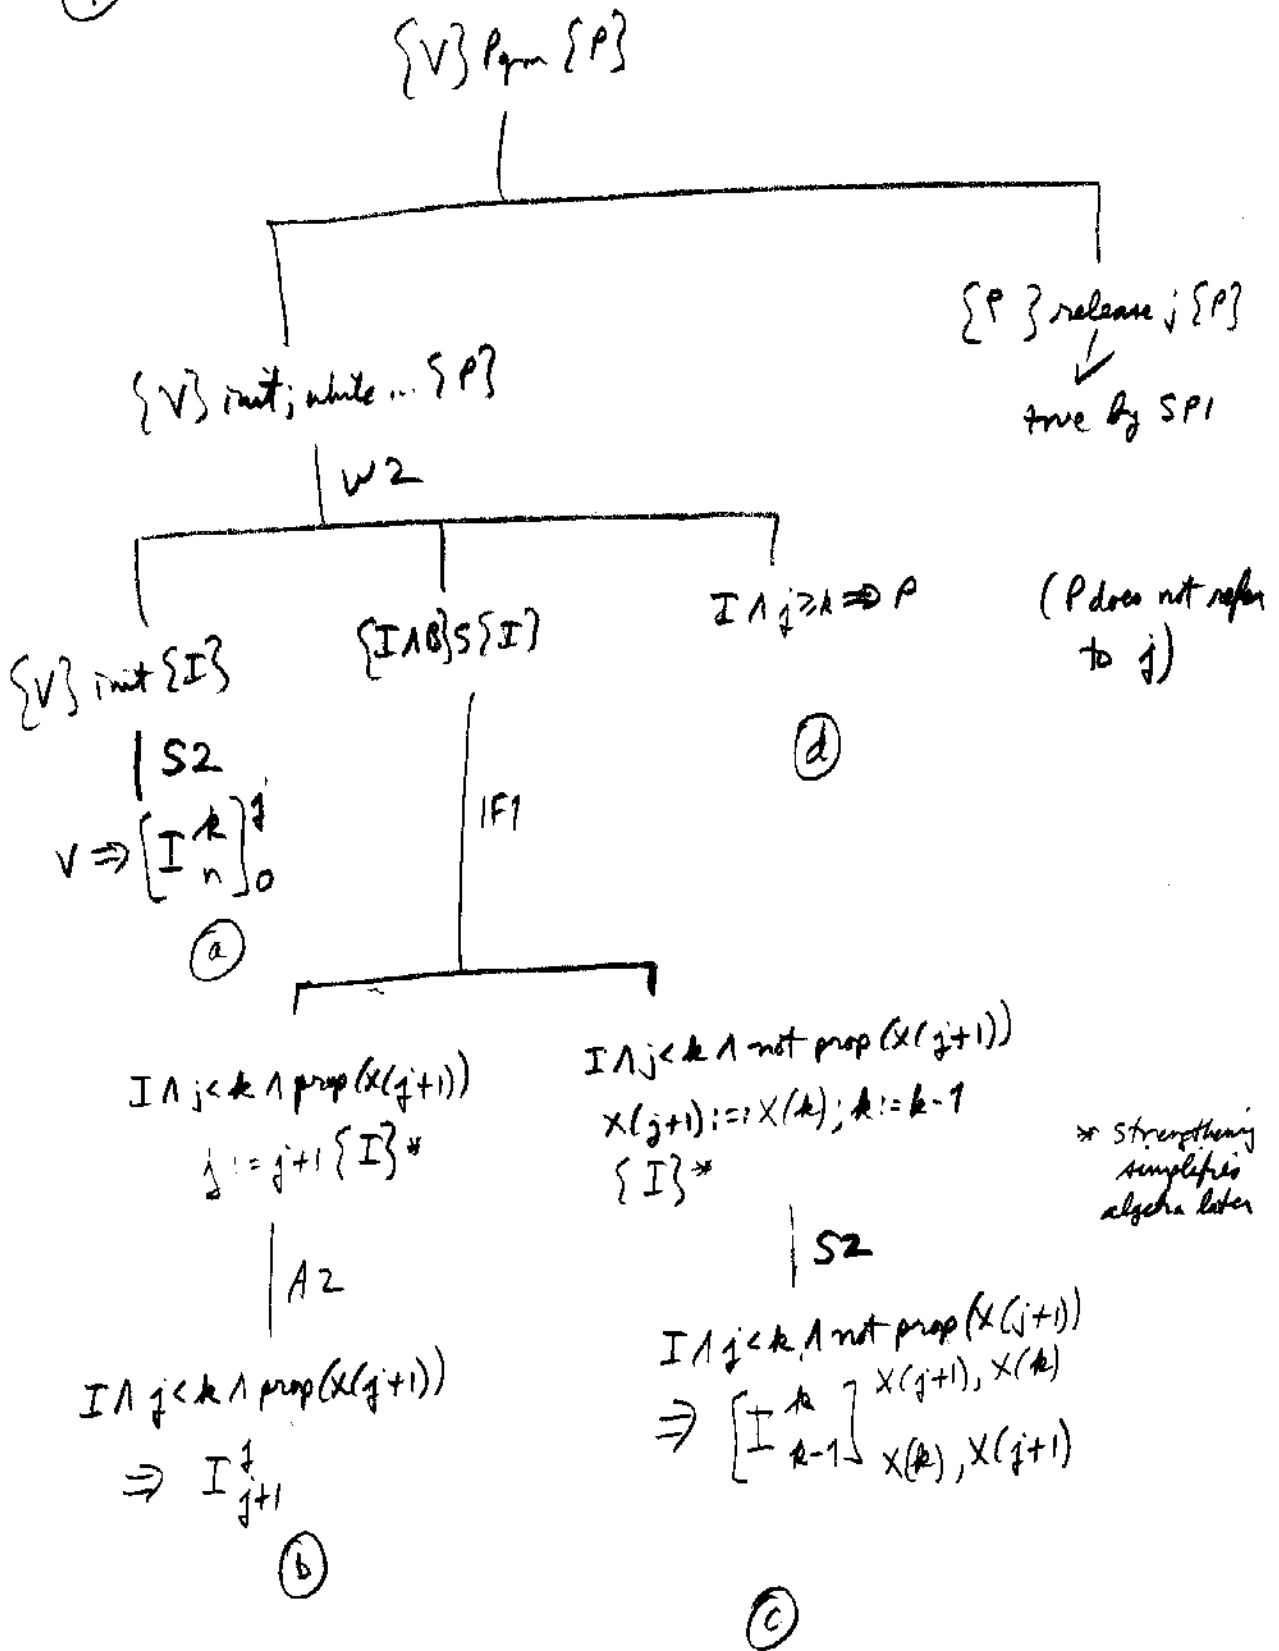 {V} Pgm {P}
{P} release j {P}
true by SP1
{V} init; while ... {P}
W2
{V} init {I}
{I∧B} S {I}
I ∧ j≥k ⇒ P
(P does not refer
to j)
S2
V ⇒ [I^k_n]^j_0
(a)
(d)
IF1
I ∧ j<k ∧ prop(X(j+1))
j := j+1 {I}*
I ∧ j<k ∧ not prop(X(j+1))
X(j+1):=:X(k); k:=k-1
{I}*
* strengthening
simplifies
algebra later
A2
S2
I ∧ j<k ∧ prop(X(j+1))
⇒ I^j_{j+1}
(b)
I ∧ j<k ∧ not prop(X(j+1))
⇒ [I^k_{k-1}]^{X(j+1), X(k)}_{X(k), X(j+1)}
(c)